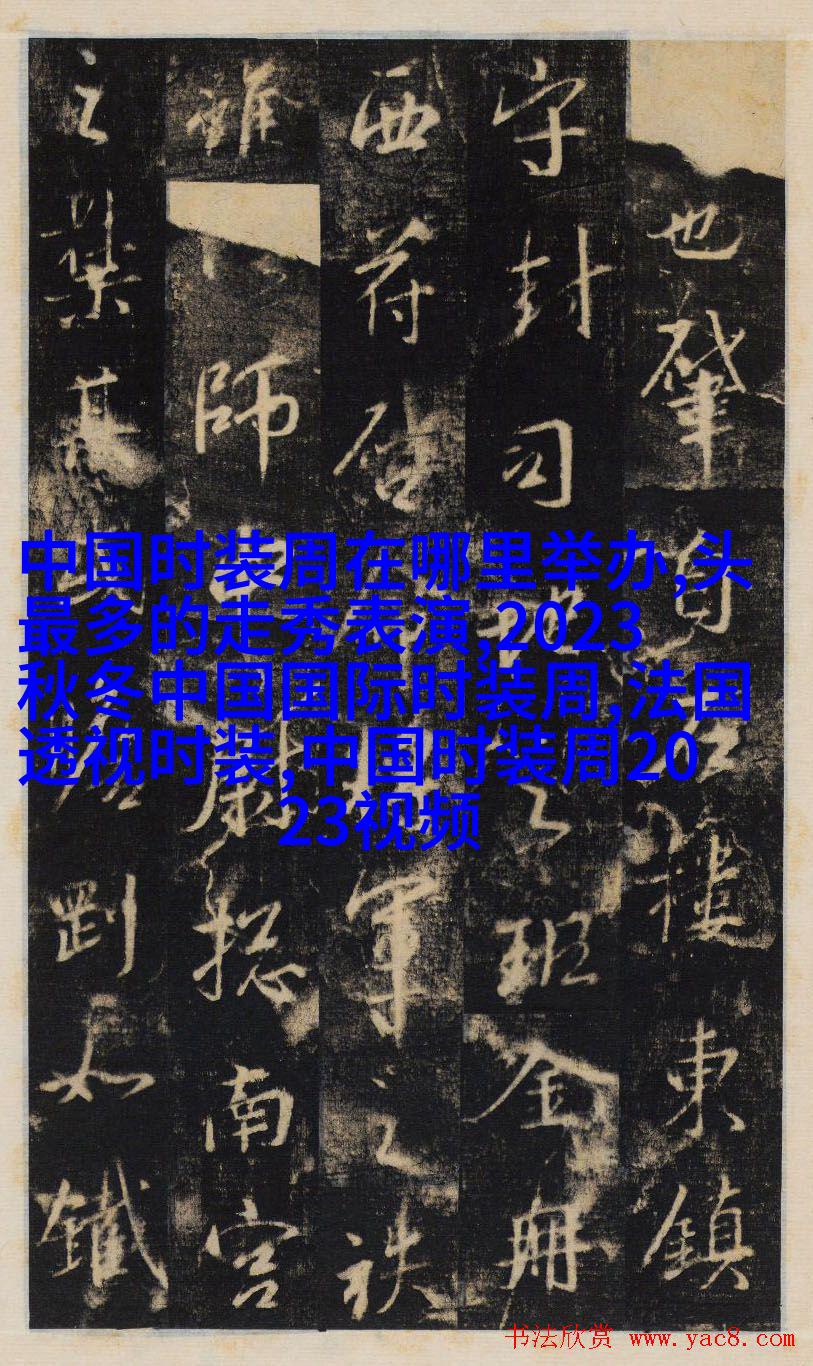 也肇自樓東鎮
守封司之班金冊
西符啓軍之秩
雖師尉揔南宮
之其剛如鐵
中国时装周在哪里举办,头
最多的走秀表演,2023
秋冬中国国际时装周,法国
透视时装,中国时装周20
23视频
书法欣赏 www.yac8.com